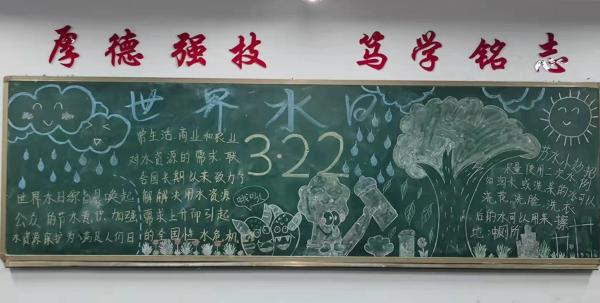 厚德强技 笃学铭志
世界水日
3·22
世界水日宗旨是唤起
公众的节水意识,加强
水资源保护为满足人们日
常生活,商业和农业
对水资源的需求,联
合国长期以来致力于
解决用水资源
需求上升而引起
的全国性水危机
节水小妙招
尽量使用二次水,例
如淘米或洗菜的水可以
洗衣、洗脸、洗衣
后的水可以用来擦
地、冲厕所